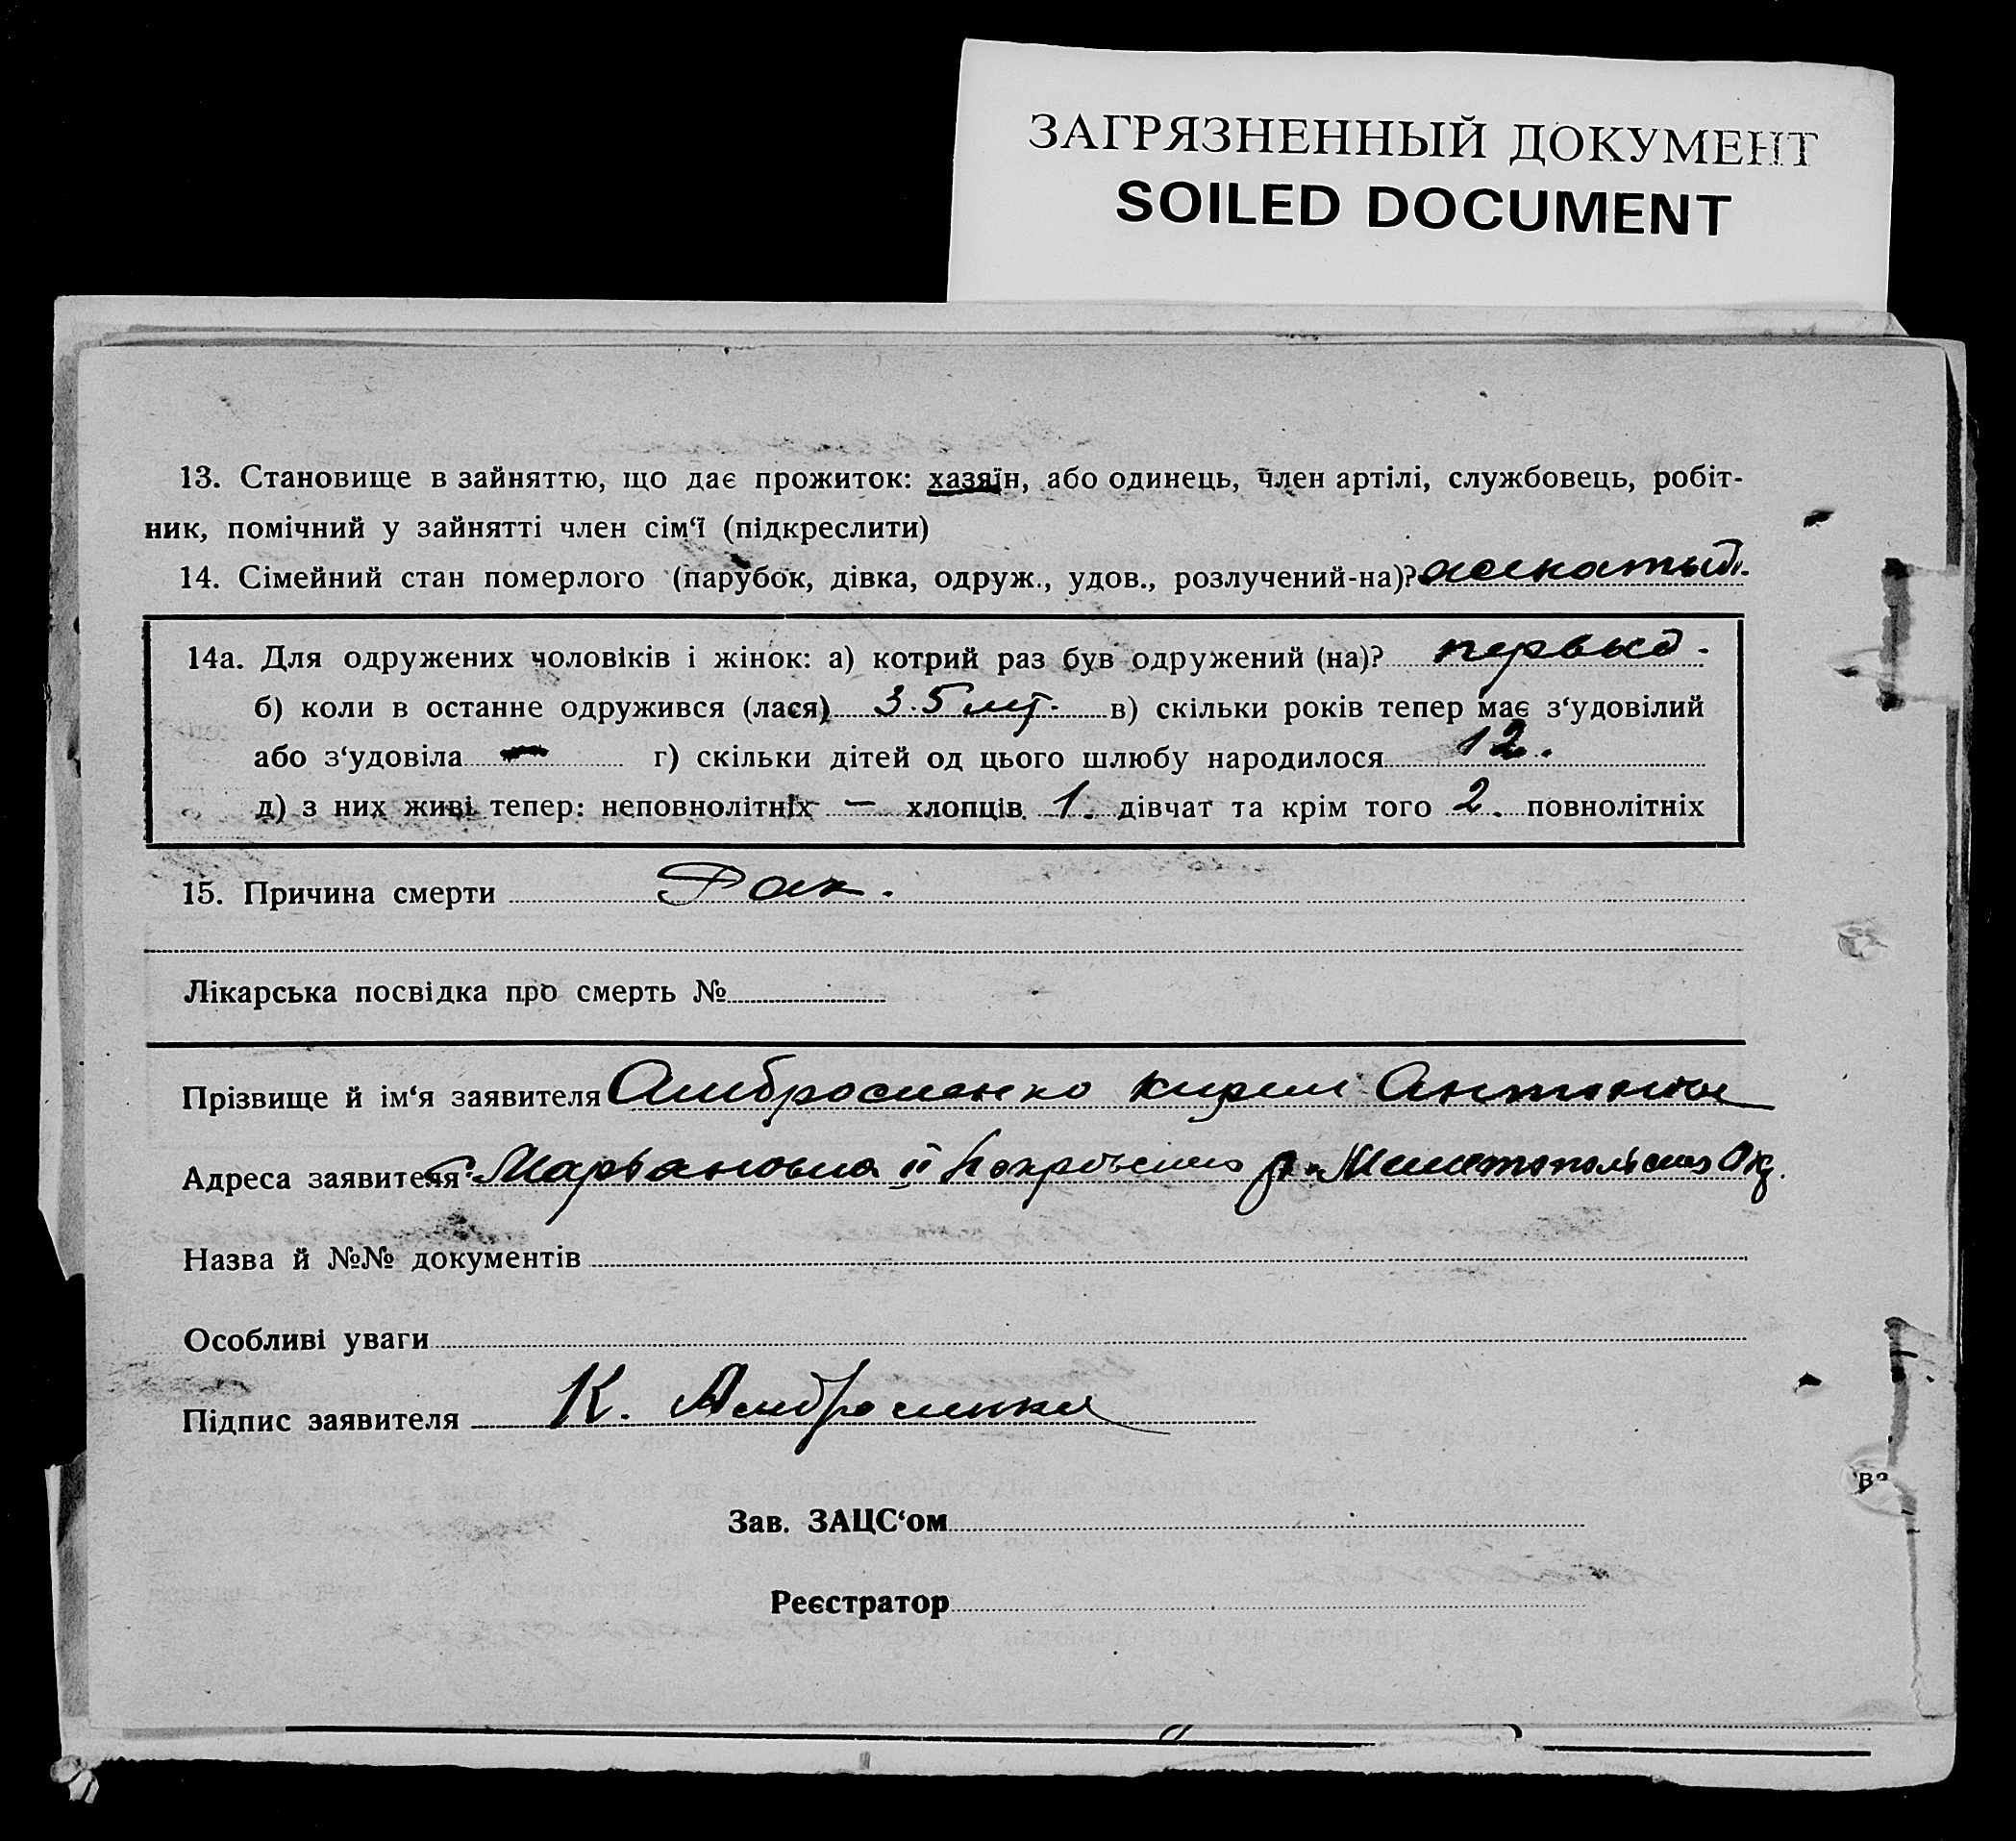 ЗАГРЯЗНЕННЫЙ ДОКУМЕНТ
SOILED DOCUMENT
13. Становище в зайняттю, що дає прожиток: хазяїн, або одинець, член артілі, службовець, робіт-
ник, помічний у зайнятті член сім‘ї (підкреслити)
14. Сімейний стан померлого (парубок, дівка, одруж., удов., розлучений-на)? женатый.
14а. Для одружених чоловіків і жінок: а) котрий раз був одружений (на)? первый.
б) коли в останне одружився (лася) 35 лет. в) скільки років тепер має з‘удовілий
або з‘удовіла — г) скільки дітей од цього шлюбу народилося 12.
д) з них живі тепер: неповнолітніх — хлопців 1. дівчат та крім того 2. повнолітніх
15. Причина смерти Рак.
Лікарська посвідка про смерть №
Прізвище й ім‘я заявителя Амбросиенко Кирил
Адреса заявителя: Покровского р. Мелитопольского Окр.
Назва й №№ документів
Особливі уваги
Підпис заявителя К.
Зав. ЗАЦС‘ом
Реєстратор